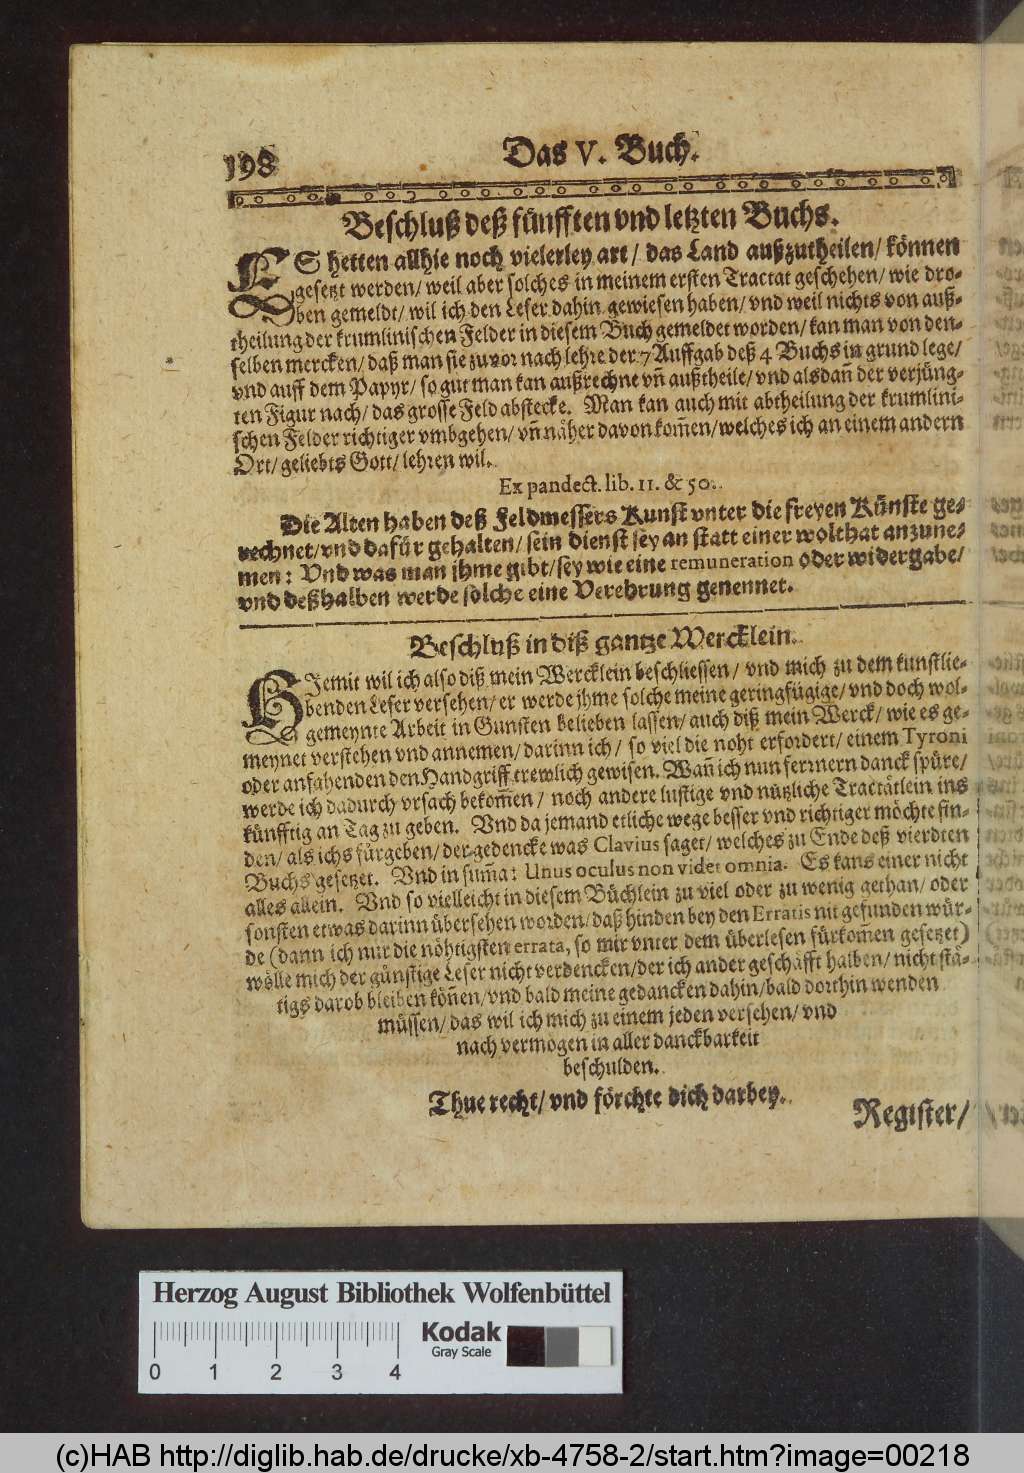 198
Das V. Buch.
Beschluß deß fünfften vnd letzten Buchs.
ES hetten allhie noch vielerley art / das Land außzutheilen / können
gesetzt werden / weil aber solches in meinem ersten Tractat geschehen / wie dro-
ben gemeldt / wil ich den Leser dahin gewiesen haben / vnd weil nichts von auß-
theilung der krumlinischen Felder in diesem Buch gemeldet worden / kan man von den-
selben mercken / daß man sie zuvor nach lehre der 7 Auffgab deß 4 Buchs in grund lege /
vnd auff dem Papyr / so gut man kan außrechne vn̄ außtheile / vnd alsdañ der verjüng-
ten Figur nach / das grosse Feld abstecke. Man kan auch mit abtheilung der krumlini-
schen Felder richtiger vmbgehen / vn̄ näher davon kom̄en / welches ich an einem andern
Ort / geliebts Gott / lehren wil.
Ex pandect. lib. 11. & 50.
Die Alten haben deß Feldmessers Kunst vnter die freyen Künste ge-
rechnet / vnd dafür gehalten / sein dienst sey an statt einer wolthat anzune-
men: Vnd was man jhme gibt / sey wie eine remuneration oder widergabe /
vnd deßhalben werde solche eine Verehrung genennet.
Beschluß in diß gantze Wercklein.
HJemit wil ich also diß mein Wercklein beschliessen / vnd mich zu dem kunstlie-
benden Leser versehen / er werde jhme solche meine geringfügige / vnd doch wol-
gemeynte Arbeit in Gunsten belieben lassen / auch diß mein Werck / wie es ge-
meynet verstehen vnd annemen / darinn ich / so viel die noht erfordert / einem Tyroni
oder anfahenden den Handgriff trewlich gewisen. Wañ ich nun fernern danck spüre /
werde ich dadurch vrsach bekom̄en / noch andere lustige vnd nützliche Tractätlein ins
künfftig an Tag zu geben. Vnd da jemand etliche wege besser vnd richtiger möchte fin-
den / als ichs fürgeben / der gedencke was Clavius saget / welches zu Ende deß vierdten
Buchs gesetzet. Vnd in sum̄a: Unus oculus non videt omnia. Es kans einer nicht
alles allein. Vnd so vielleicht in diesem Büchlein zu viel oder zu wenig gethan / oder
sonsten etwas darinn übersehen worden / daß hinden bey den Erratis nit gefunden wür-
de (dann ich nur die nöhtigsten errata, so mir vnter dem überlesen fürkom̄en gesetzet)
wölle mich der günstige Leser nicht verdencken / der ich ander geschäfft halben / nicht stä-
tigs darob bleiben köñen / vnd bald meine gedancken dahin / bald dorthin wenden
müssen / das wil ich mich zu einem jeden versehen / vnd
nach vermögen in aller danckbarkeit
beschulden.
Thue recht / vnd förchte dich darbey.
Register /
Herzog August Bibliothek Wolfenbüttel
Kodak
Gray Scale
0 1 2 3 4
(c)HAB http://diglib.hab.de/drucke/xb-4758-2/start.htm?image=00218